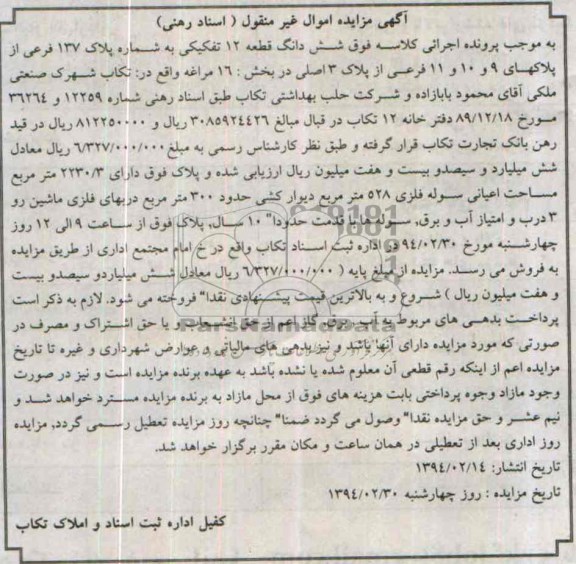 آگهی مزایده اموال غیر منقول ( اسناد رهنی)
به موجب پرونده اجرائی کلاسه فوق شش دانگ قطعه ١٢ تفکیکی به شماره پلاک ١٣٧ فرعی از
پلاکهای ٩ و ١٠ و ١١ فرعی از پلاک ٣ اصلی در بخش : ١٦ مراغه واقع در: تکاب شهرک صنعتی
ملکی آقای محمود بابازاده و شرکت حلب بهداشتی تکاب طبق اسناد رهنی شماره ١٢٢٥٩ و ٣٦٢٦٤
مورخ ٨٩/١٢/١٨ دفتر خانه ١٢ تکاب در قبال مبالغ ٣٠٨٥٩٢٤٤٢٦ ریال و ٨١٢٢٥٠٠٠٠ ریال در قید
رهن بانک تجارت تکاب قرار گرفته و طبق نظر کارشناس رسمی به مبلغ ٦/٣٢٧/٠٠٠/٠٠٠ ریال معادل
شش میلیارد و سیصدو بیست و هفت میلیون ریال ارزیابی شده و پلاک فوق دارای ٢٢٣٠/٣ متر مربع
مساحت اعیانی سوله فلزی ٥٢٨ متر مربع دیوار کشی حدود ٣٠٠ متر مربع دربهای فلزی ماشین رو
٣ درب و امتیاز آب و برق, سوله ها با قدمت حدودا" ١٠ سال, پلاک فوق از ساعت ٩ الی ١٢ روز
چهارشنبه مورخ ٩٤/٠٢/٣٠ در اداره ثبت اسناد تکاب واقع در خ امام مجتمع اداری از طریق مزایده
به فروش می رسد. مزایده از مبلغ پایه ( ٦/٣٢٧/٠٠٠/٠٠٠ ریال معادل شش میلیاردو سیصدو بیست
و هفت میلیون ریال ) شروع و به بالاترین قیمت پیشنهادی نقدا" فروخته می شود. لازم به ذکر است
پرداخت بدهی های مربوط به آب, برق, گاز اعم از حق انشعاب و یا حق اشتراک و مصرف در
صورتی که مورد مزایده دارای آنها باشد و نیز بدهی های مالیاتی و عوارض شهرداری و غیره تا تاریخ
مزایده اعم از اینکه رقم قطعی آن معلوم شده یا نشده باشد به عهده برنده مزایده است و نیز در صورت
وجود مازاد وجوه پرداختی بابت هزینه های فوق از محل مازاد به برنده مزایده مسترد خواهد شد و
نیم عشر و حق مزایده نقدا" وصول می گردد ضمنا" چنانچه روز مزایده تعطیل رسمی گردد, مزایده
روز اداری بعد از تعطیلی در همان ساعت و مکان مقرر برگزار خواهد شد.
تاریخ انتشار: ١٣٩٤/٠٢/١٤
تاریخ مزایده : روز چهارشنبه ١٣٩٤/٠٢/٣٠
کفیل اداره ثبت اسناد و املاک تکاب